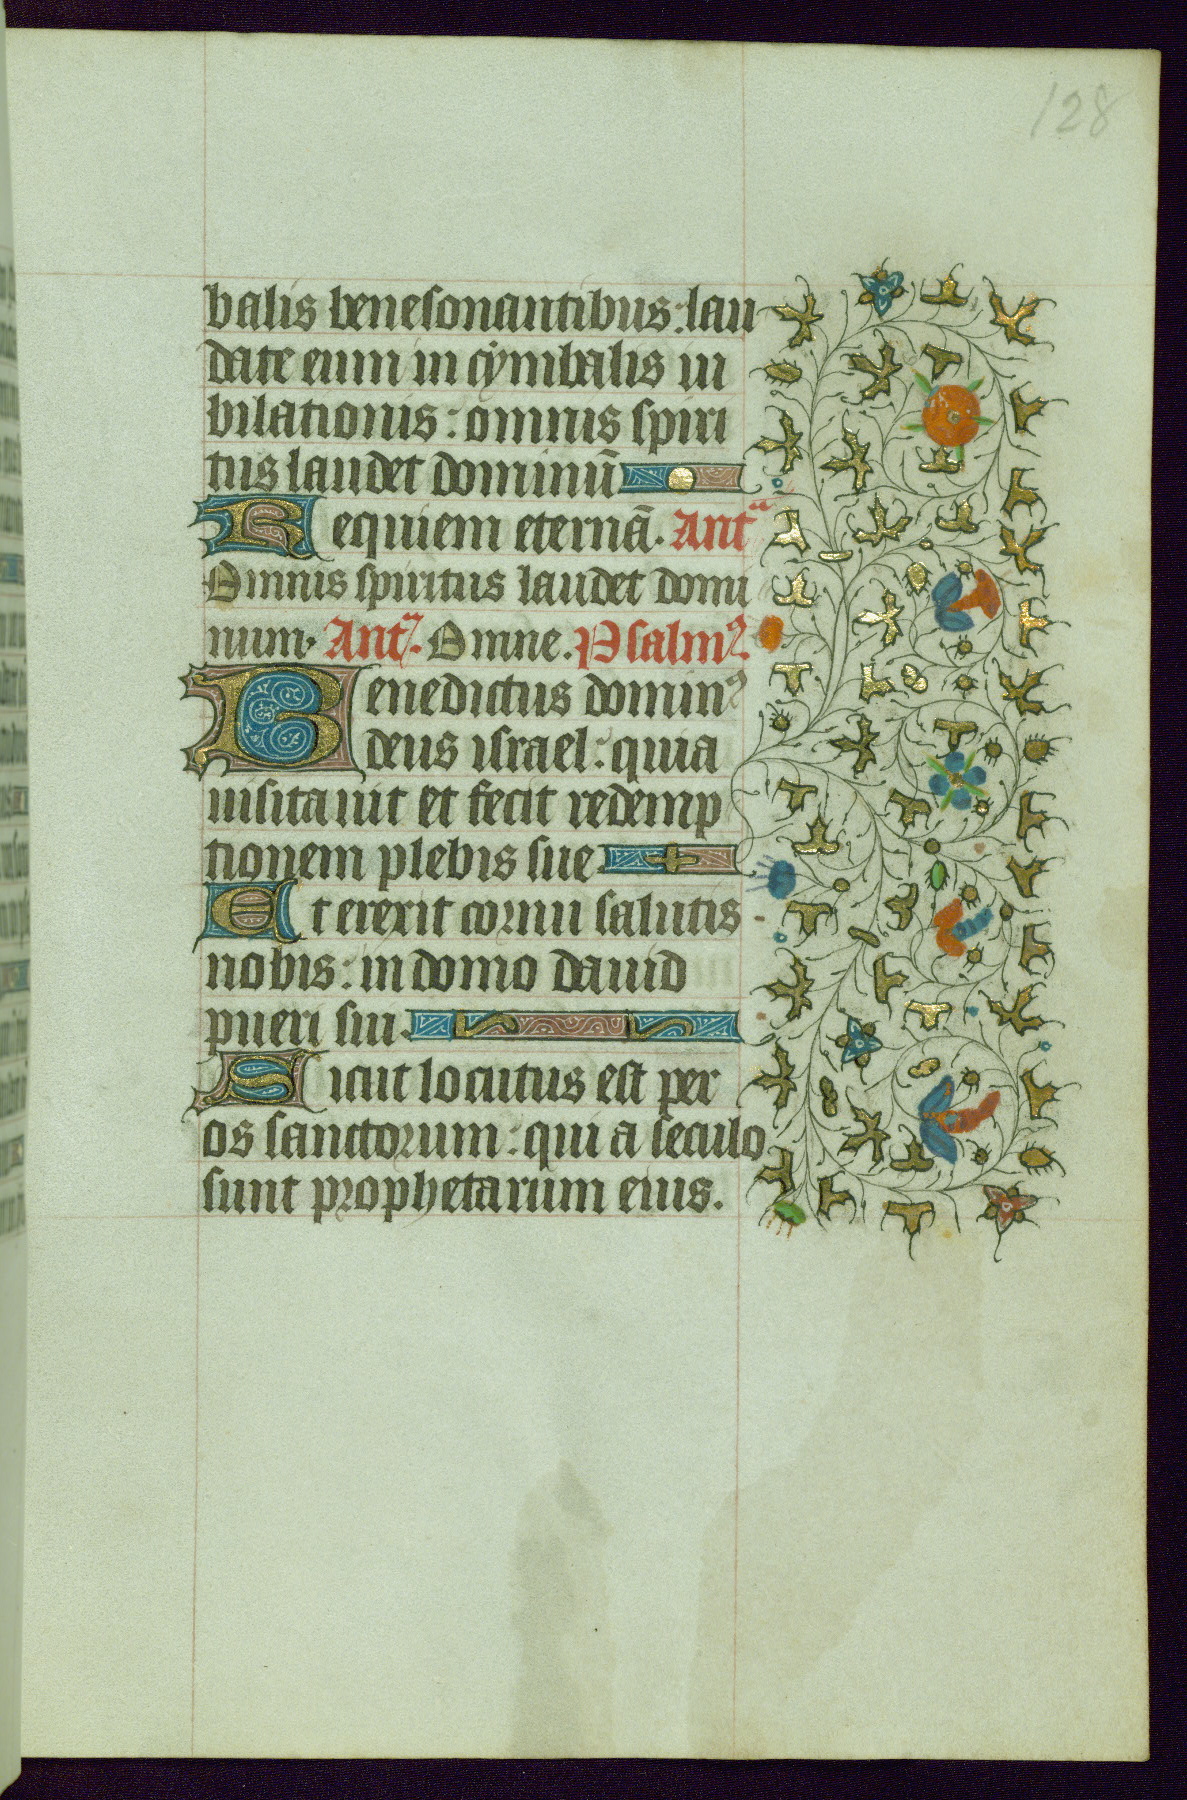 128
balis benesonantibus: lau
date eum in cymbalis iu
bilationis: omnis spiri
tus laudet dominū
Requiem eternā. Antᵃ
Omnis spiritus laudet domi
num. Antᵃ. Omne. Psalmꝰ.
Benedictus dominꝰ
deus israel: quia
uisitauit et fecit redemp
tionem plebis sue
Et erexit cornu salutis
nobis: in domo dauid
pueri sui
Sicut locutus est per
os sanctorum: qui a seculo
sunt prophetarum eius.